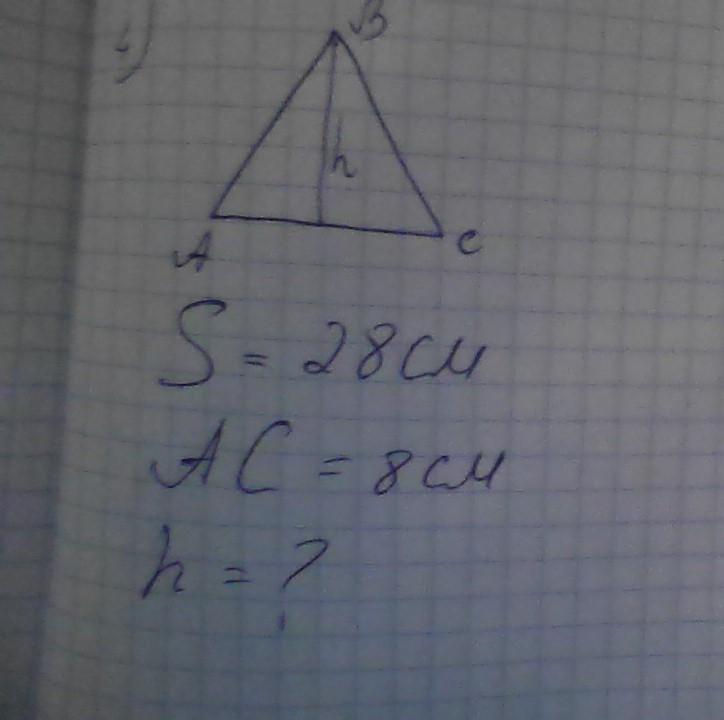 B
h
A C
S = 28см
AC = 8см
h = ?